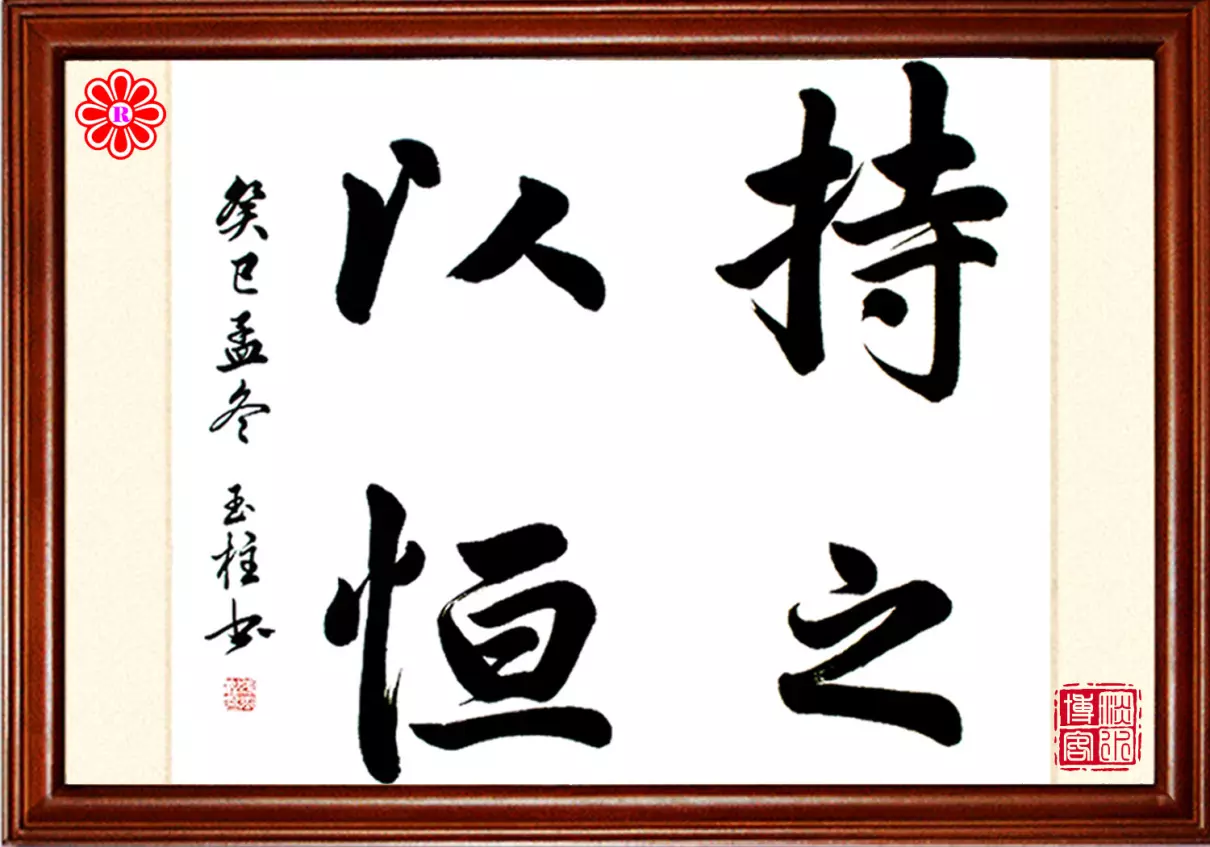 持之
以恒
癸巳孟冬 玉柱书
R
博客